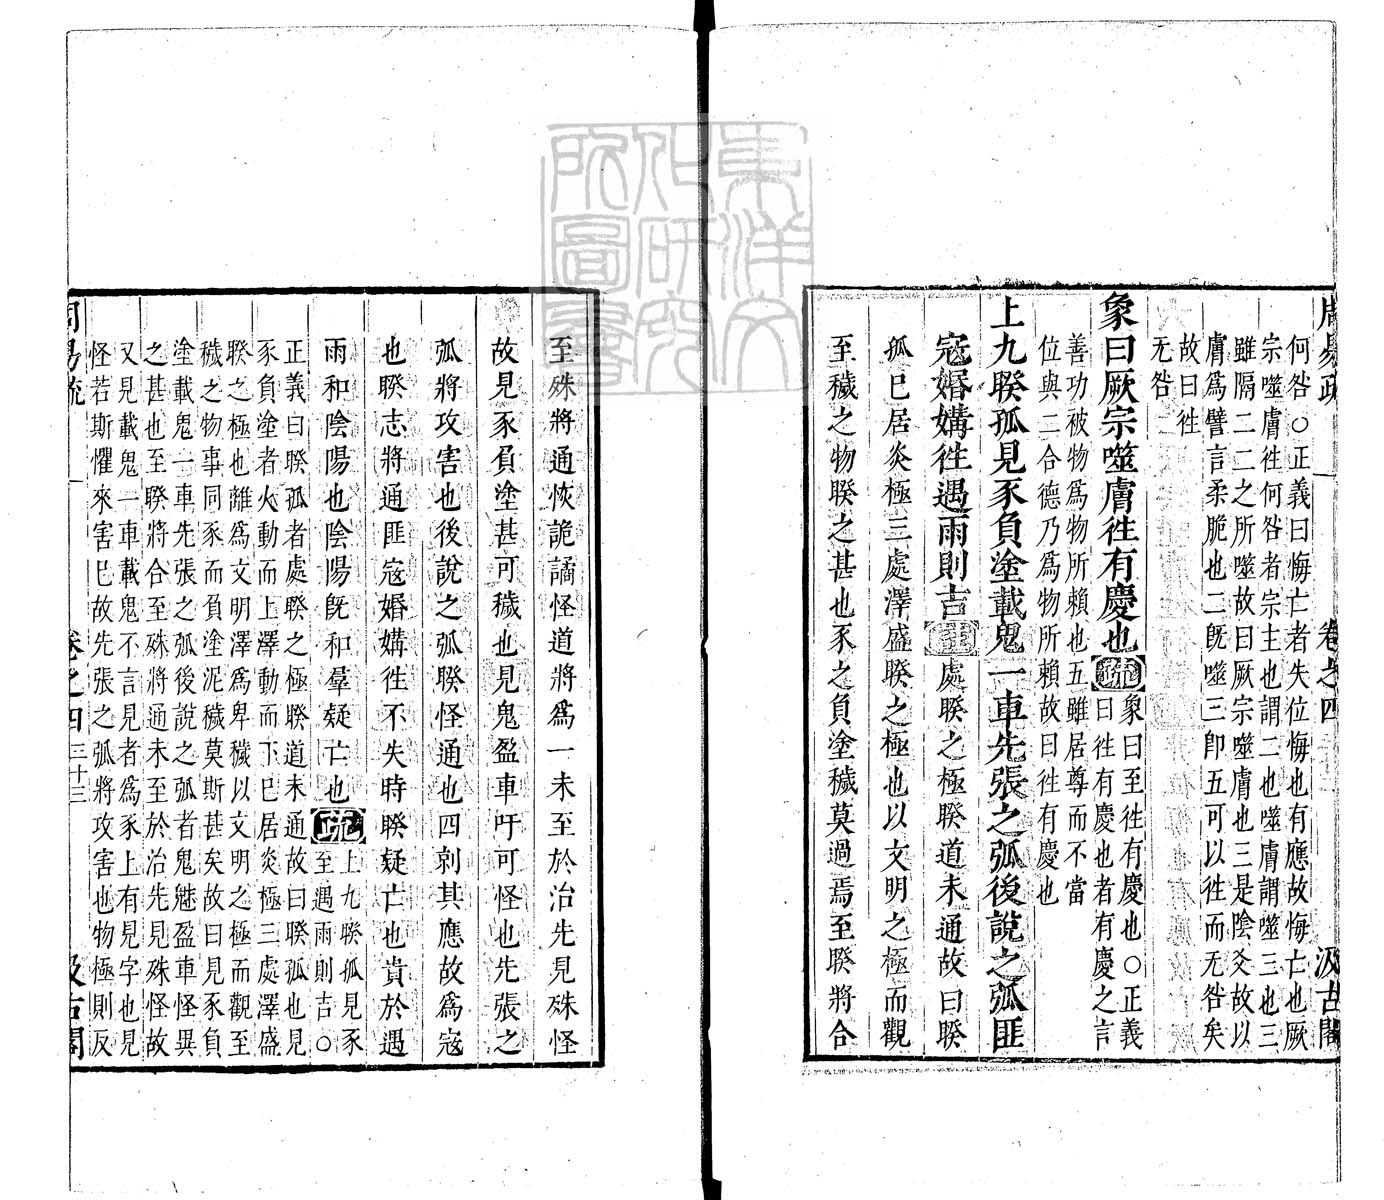 周易疏
卷之四
汲古閣
何咎○正義曰悔亡者失位悔也有應故悔亡也厥
宗噬膚徃何咎者宗主也謂二也噬膚謂噬三也三
雖隔二二之所噬故曰厥宗噬膚也三是陰爻故以
膚爲譬言柔脆也二旣噬三卽五可以徃而无咎矣
故曰徃
无咎
象曰厥宗噬膚徃有慶也
善功被物爲物所賴也五雖居尊而不當
位與二合德乃爲物所賴故曰徃有慶也
疏
象曰至徃有慶也○正義
曰徃有慶也者有慶之言
上九睽孤見豕負塗載鬼一車先張之弧後說之弧匪
寇婚媾徃遇雨則吉
注
處睽之極睽道未通故曰睽
孤巳居炎極三處澤盛睽之極也以文明之極而觀
至穢之物睽之甚也豕之負塗穢莫過焉至睽將合
至殊將通恢詭譎怪道將爲一未至於治先見殊怪
故見豕負塗甚可穢也見鬼盈車吁可怪也先張之
弧將攻害也後說之弧睽怪通也四剠其應故爲寇
也睽志將通匪寇婚媾徃不失時睽疑亡也貴於遇
雨和陰陽也陰陽旣和羣疑亡也
疏
上九睽孤見豕
至遇雨則吉○
正義曰睽孤者處睽之極睽道未通故曰睽孤也見
豕負塗者火動而上澤動而下巳居炎極三處澤盛
睽之極也離爲文明澤爲卑穢以文明之極而觀至
穢之物事同豕而負塗泥穢莫斯甚矣故曰見豕負
塗載鬼一車先張之弧後說之弧者鬼魅盈車怪異
之甚也至睽將合至殊將通未至於治先見殊怪故
又見載鬼一車載鬼不言見者爲豕上有見字也見
怪若斯懼來害巳故先張之弧將攻害也物極則反
周易疏
卷之四
三十三
汲古閣
東洋文
化研究
所圖書